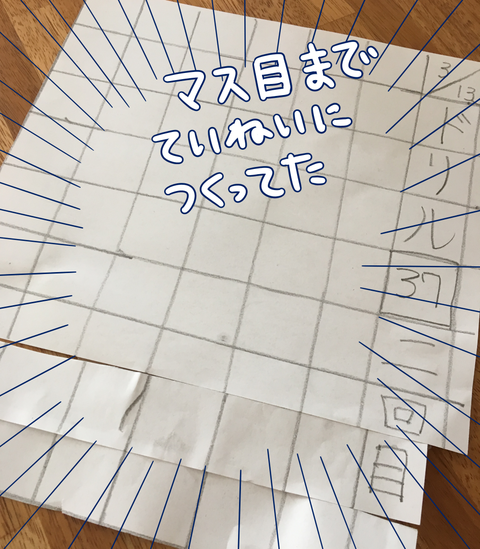 マス目まで
ていねいに
つくってた
3/13
ドリル37二回目